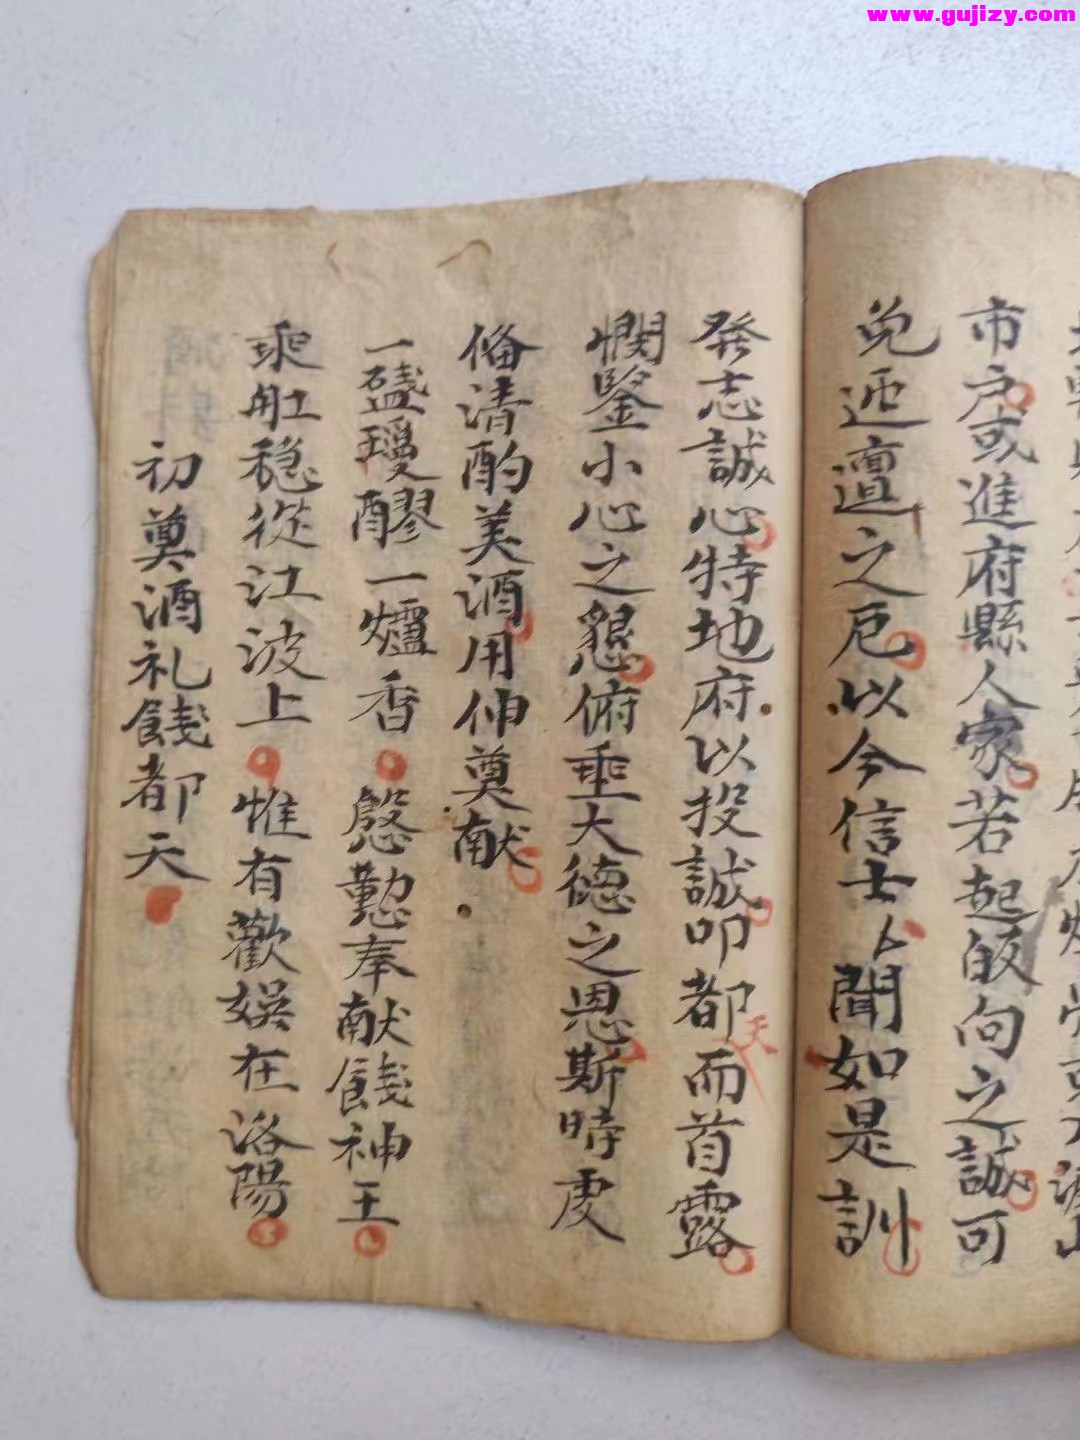 www.gujizy.com
市户或進府縣人家若起皈向之誠可
免迍邅之厄以今信士厶聞如是訓
發志誠心特地府以投誠叩都天而首露
憫鑒小心之懇俯垂大德之恩斯時虔
俻清酌美酒用伸奠献
一盞瓊醪一爐香慇懃奉献餞神王
乘舡穏從江波上惟有歡娱在洛陽
初奠酒礼餞都天